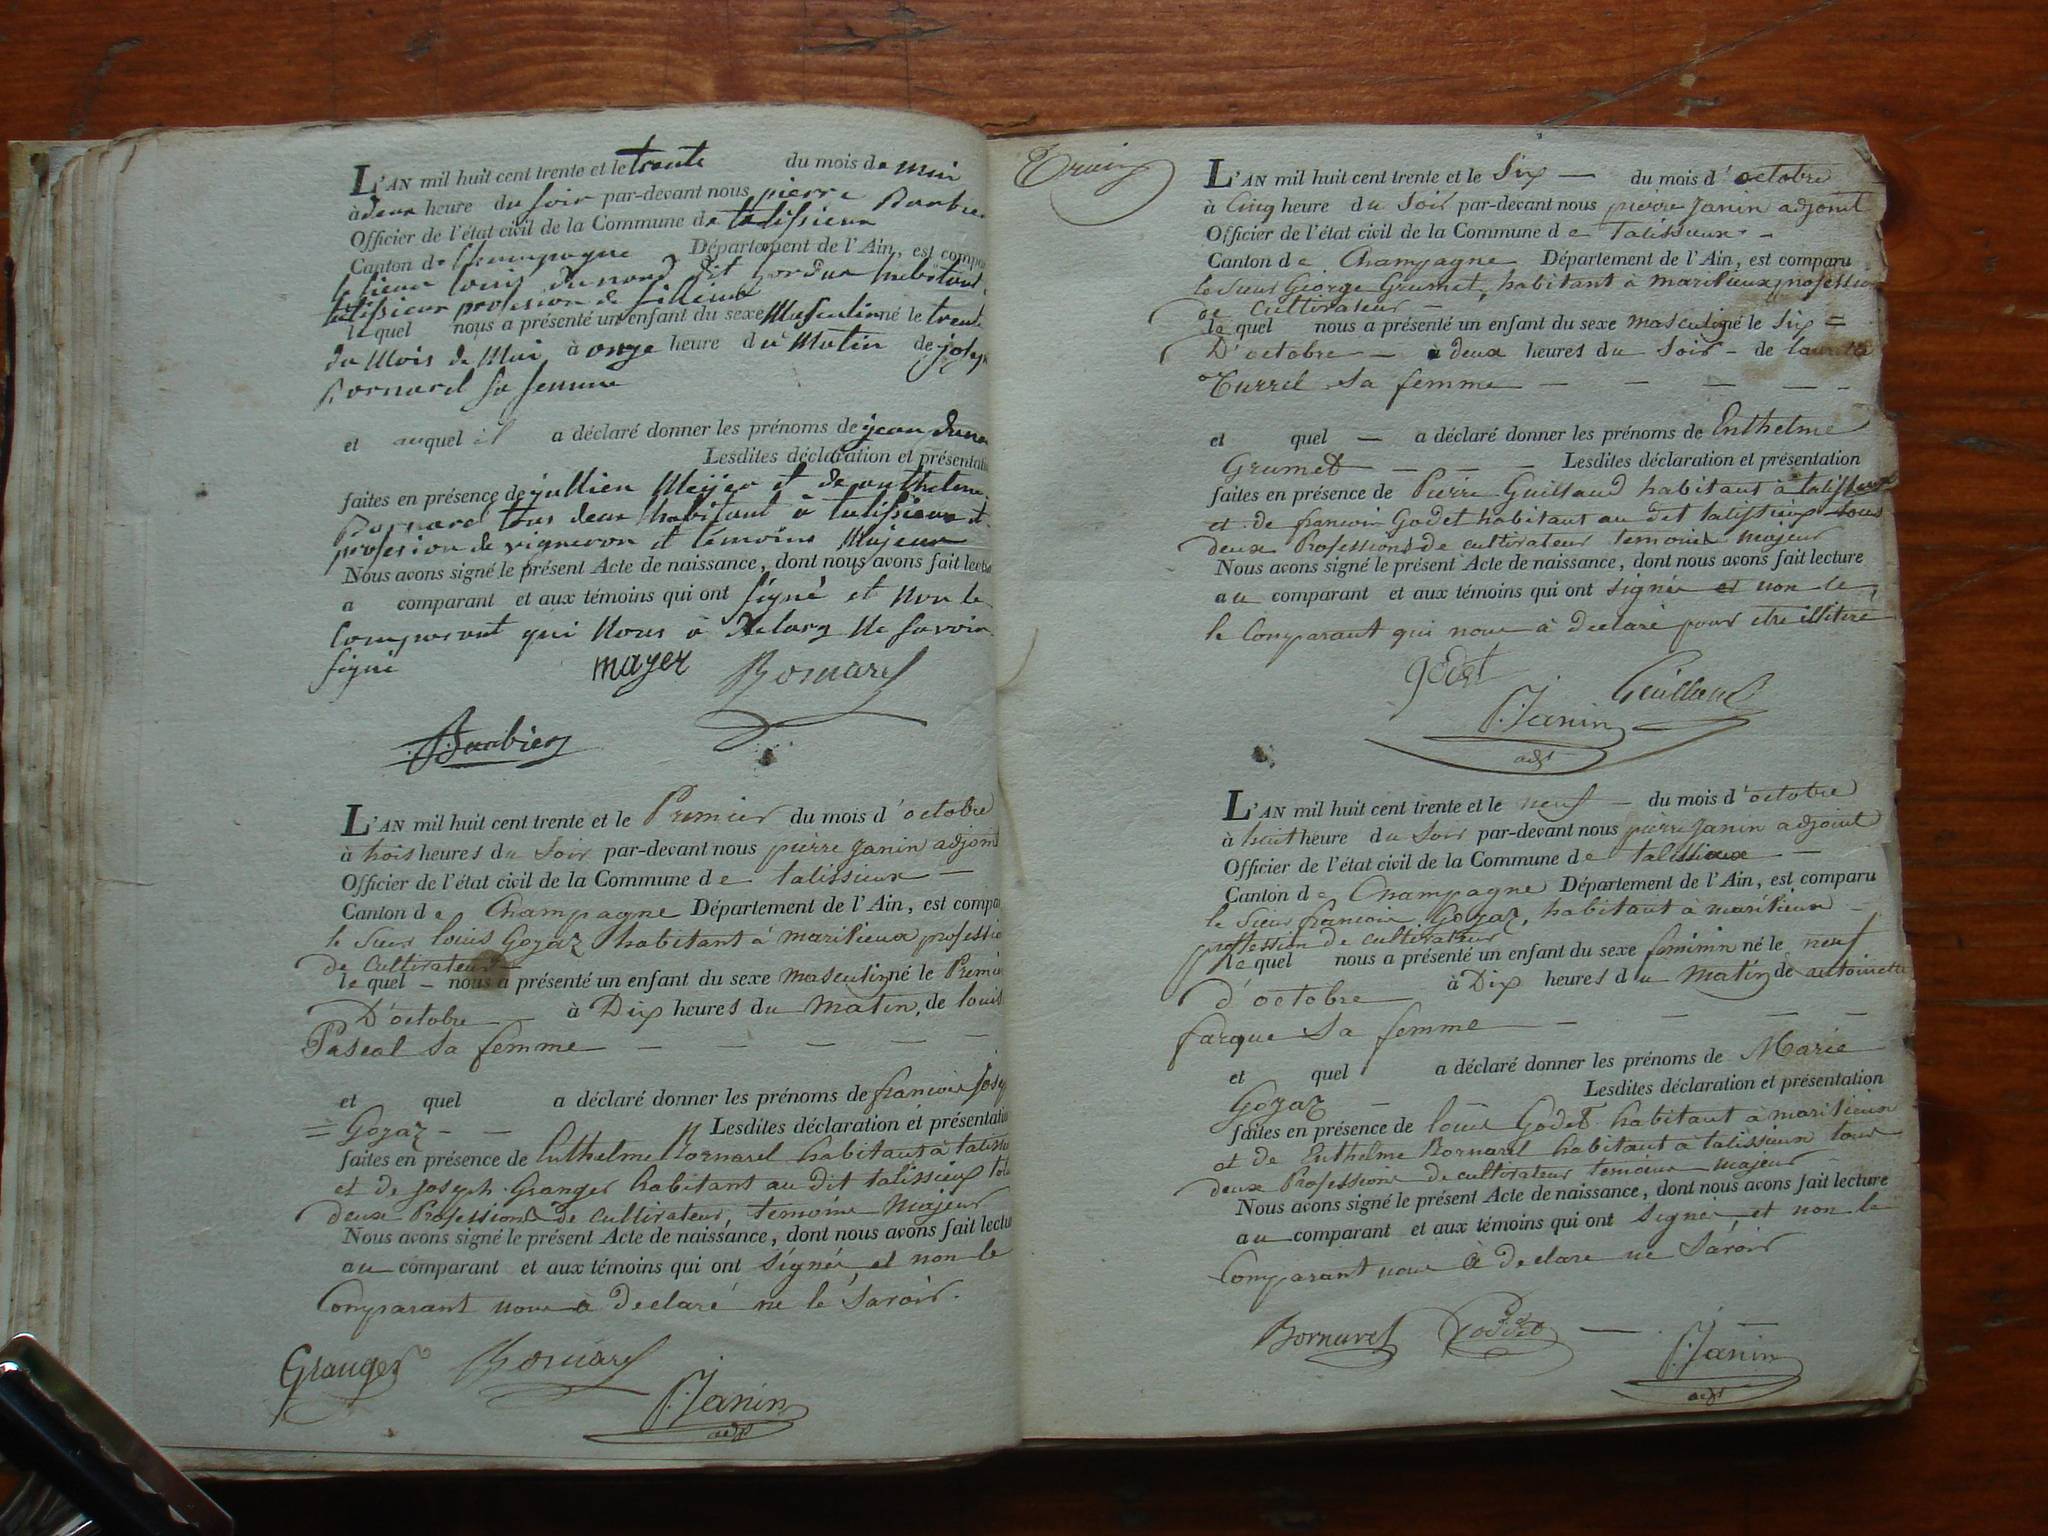 L'AN mil huit cent trente et le trente du mois de mai
à deux heure du soir par-devant nous pierre Barbier
Officier de l'état civil de la Commune de talissieux
Canton de Champagne Département de l'Ain, est compa
le sieur louis dunord dit habitant
talissieux profession de
le quel nous a présenté un enfant du sexe Masculin né le trente
du Mois de Mai à onze heure du Matin de josep
Bornarel sa femme
et auquel il a déclaré donner les prénoms de jean duno
Lesdites déclaration et présentati
faites en présence de jullien Meyer et de anthelme
Bornarel tous deux habitant à talissieux et
profesion de vigneron et témoins Majeur
Nous avons signé le présent Acte de naissance, dont nous avons fait lectu
a comparant et aux témoins qui ont signé et non le
comparant qui nous à declaré ne savoir
signé
mayer Bornarel
P. Barbier
L'AN mil huit cent trente et le Premier du mois d'octobre
à trois heures du Soir par-devant nous pierre Janin adjoint
Officier de l'état civil de la Commune de talissieux —
Canton de Champagne Département de l'Ain, est compa
le Sieur louis Gojaz habitant à marilieux professio
de cultirateur —
le quel — nous a présenté un enfant du sexe masculin né le Premie
D'octobre — à Dix heures du Matin, de louis
Pascal Sa femme — — — — —
et quel a déclaré donner les prénoms de francois Josep
= Gojaz - — Lesdites déclaration et présentatio
faites en présence de Enthelme Bornarel habitant à taliss
et de joseph Granger habitant au dit talissieux tou
deux Professions de cultirateur, temoins Majeur
Nous avons signé le présent Acte de naissance, dont nous avons fait lectu
au comparant et aux témoins qui ont signés, et non le
Comparant nous à declaré ne le Savoir.
Granger Bornarel
P. Janin
adjt
L'AN mil huit cent trente et le Six — du mois d'octobre
à Cinq heure du Soir par-devant nous pierre Janin adjoint
Officier de l'état civil de la Commune de Talissieux -
Canton de Champagne Département de l'Ain, est comparu
le Sieur George Grumet, habitant à marilieux, professio
de Cultirateur —
le quel nous a présenté un enfant du sexe masculin né le Six =
D'octobre — à deux heures du Soir - de
Turrel Sa femme — — — — -
et quel — a déclaré donner les prénoms de Enthelme
Grumet — — — Lesdites déclaration et présentation
faites en présence de Pierre Guillaud habitant à talissieux
et de francois Godet habitant au dit talissieux tous
deux Professions de cultirateur temoins majeur
Nous avons signé le présent Acte de naissance, dont nous avons fait lecture
au comparant et aux témoins qui ont signés et non le,
le Comparant qui nous à declaré pour etre illitéré
godet Guillaud
P. Janin
adjt
L'AN mil huit cent trente et le neuf — du mois d'octobre
à huit heure du Soir par-devant nous pierre Janin adjoint
Officier de l'état civil de la Commune de talissieux —
Canton de Champagne Département de l'Ain, est comparu
le Sieur francois Gojaz, habitant à marilieux —
proffession de cultirateur
le quel nous a présenté un enfant du sexe feminin né le neuf
d'octobre à Dix heures du matin de antoinette
farque Sa femme — — — —
et quel a déclaré donner les prénoms de Marie
Gojaz — — Lesdites déclaration et présentation
faites en présence de louis Godet habitant à marilieux
et de Enthelme Bornarel habitant à talissieux tous
deux Professions de cultirateur temoins majeur
Nous avons signé le présent Acte de naissance, dont nous avons fait lecture
au comparant et aux témoins qui ont Signés, et non le
Comparant nous à declaré ne Savoir
Bornarel Goddet — P. Janin
adjt